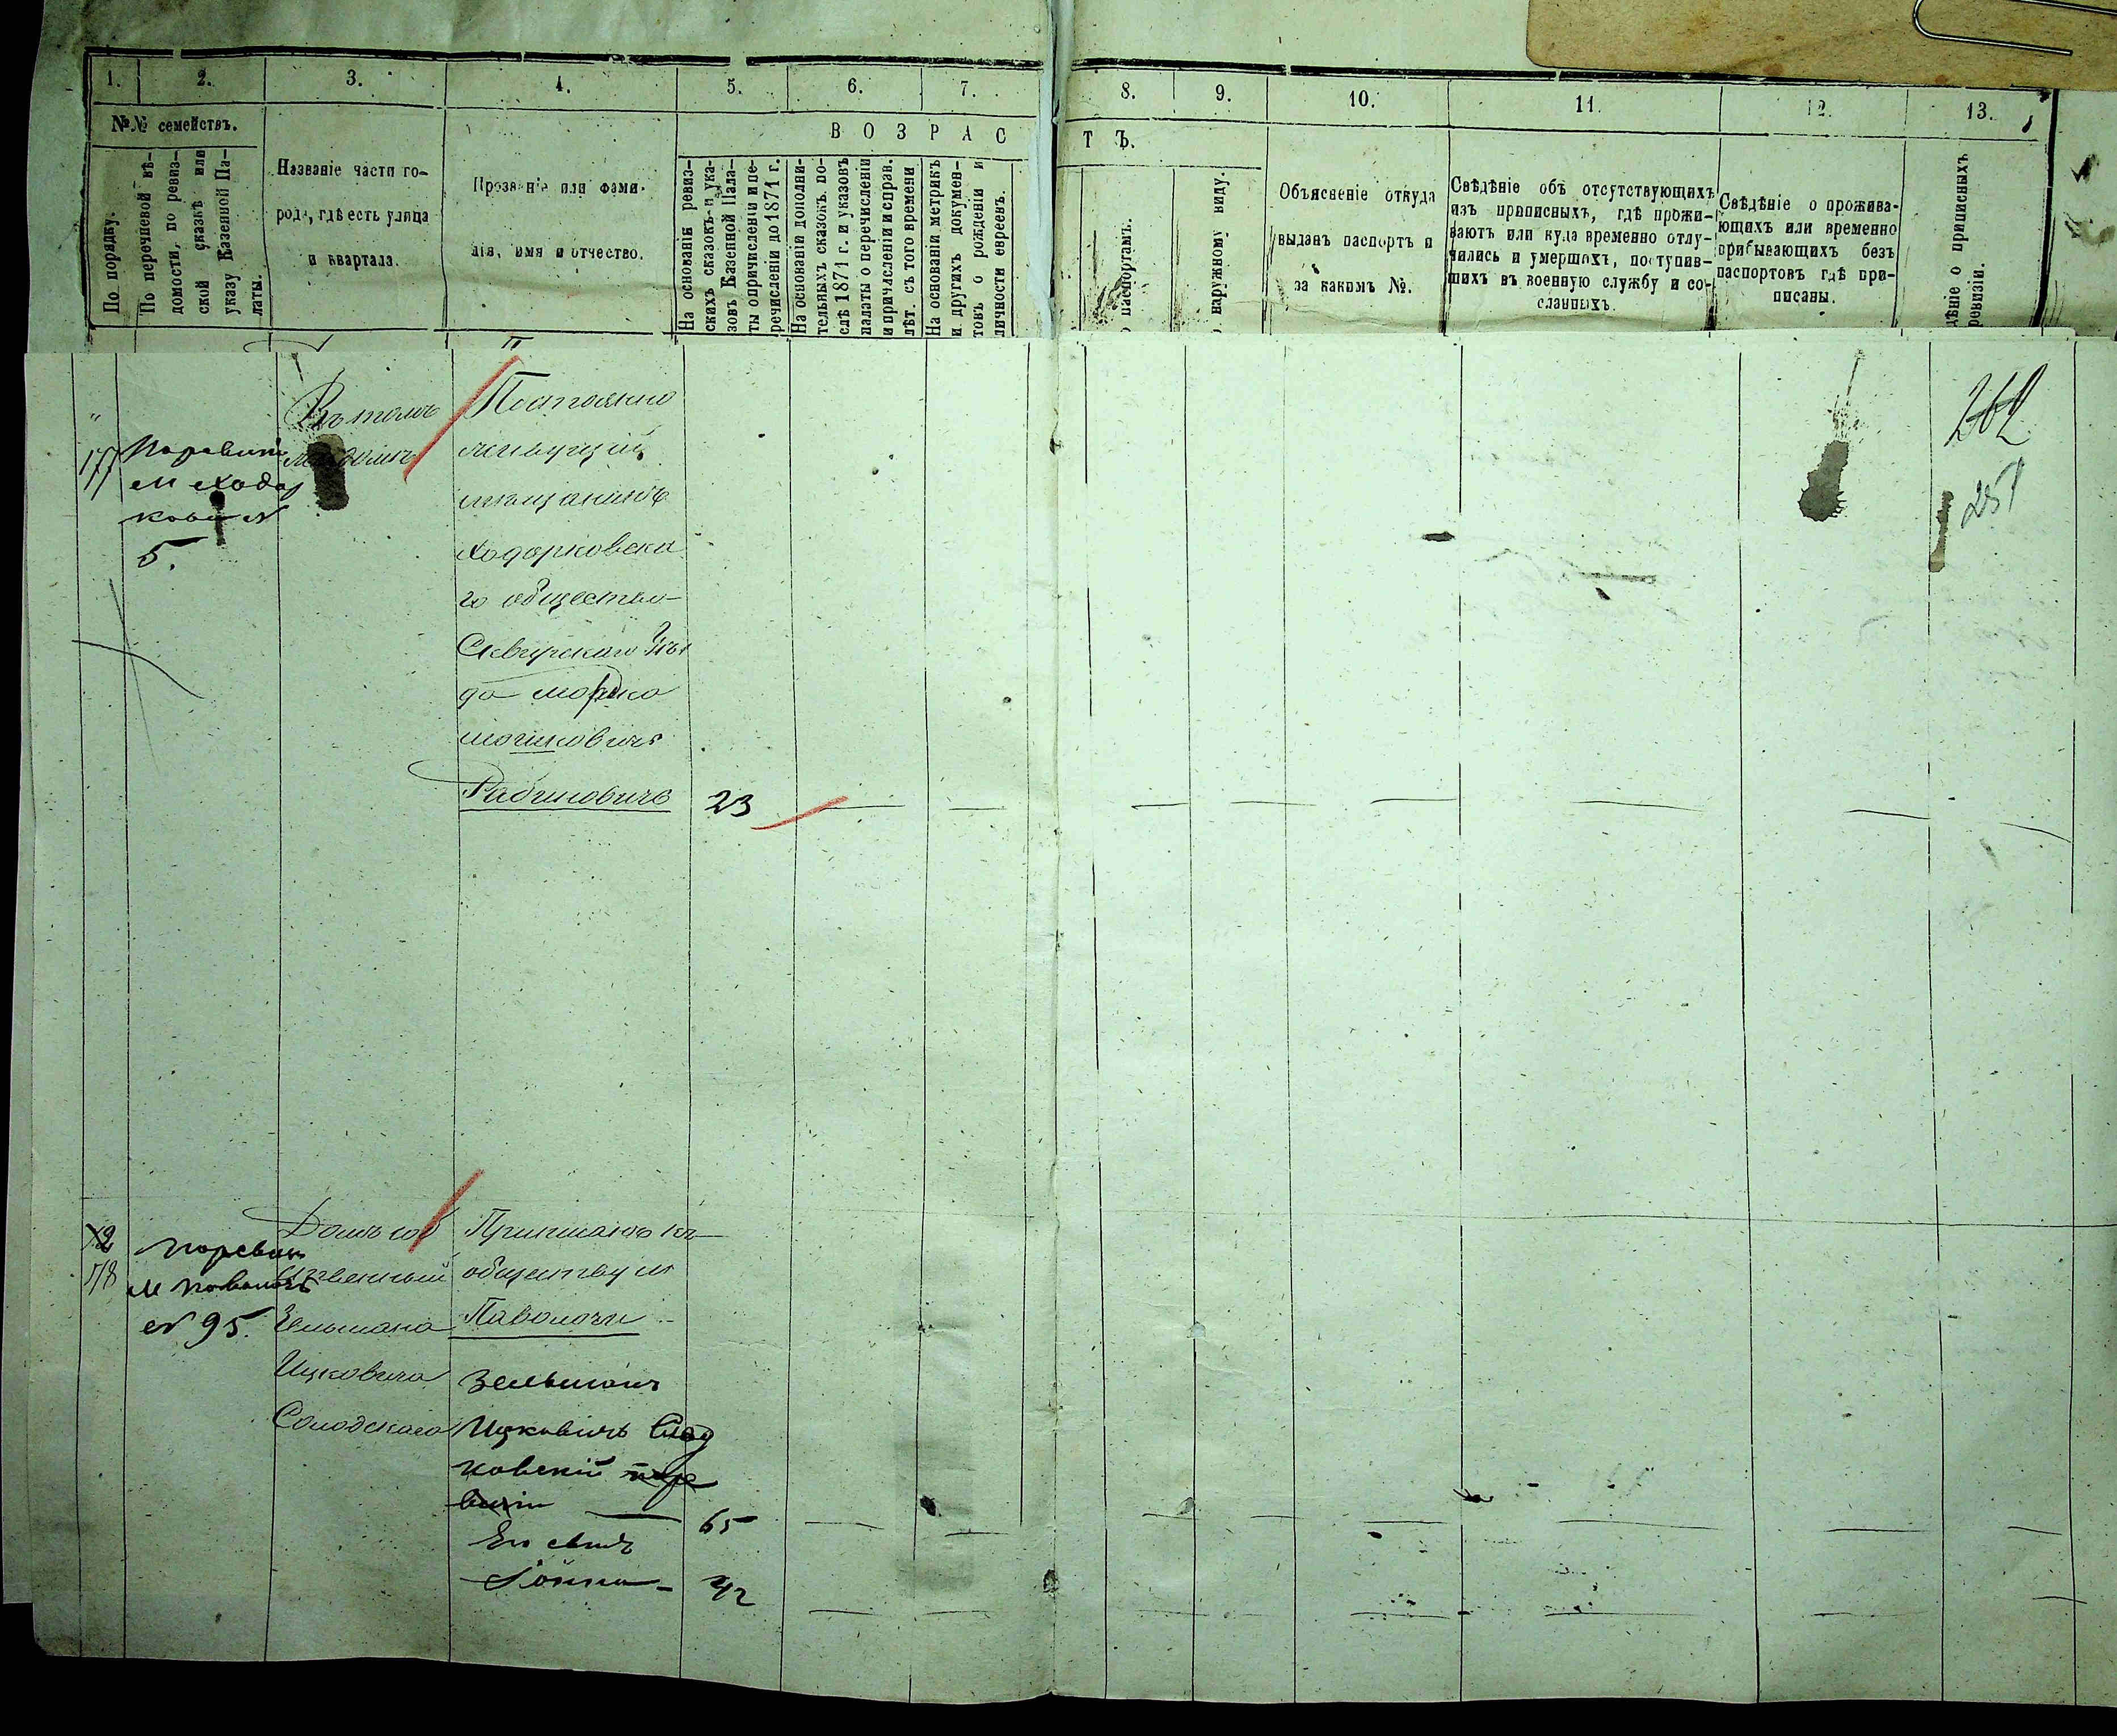 1.
2.
3.
4.
5.
6.
7.
8.
9.
10.
11.
12.
13.
№№ семействъ.
По порядку.
По перечневой вѣ-
домости, по ревиз-
ской сказкѣ или
указу Казенной Па-
латы.
Названіе части го-
рода, гдѣ есть улица
и квартала.
Прозваніе или фами-
лія, имя и отчество.
ВОЗРАС
ТЪ.
На основаніи ревиз-
скихъ сказокъ и ука-
зовъ Казенной Пала-
ты о причисленіи и пе-
речисленіи до 1871 г.
На основаніи дополни-
тельныхъ сказокъ по-
слѣ 1871 г. и указовъ
палаты о перечисленіи
и причисленіи и справ.
лѣт. съ того времени
На основаніи метрикъ
и другихъ докумен-
товъ о рожденіи и
личности евреевъ.
паспортамъ.
наружному виду.
Объясненіе откуда
выданъ паспортъ и
за какимъ №.
Свѣдѣніе объ отсутствующихъ
изъ приписныхъ, гдѣ прожи-
ваютъ или куда временно отлу-
чились и умершихъ, поступив-
шихъ въ военную службу и со-
сланныхъ.
Свѣдѣніе о прожива-
ющихъ или временно
прибывающихъ безъ
паспортовъ гдѣ при-
писаны.
дѣніе о приписныхъ
ревизіи.
177
По ревизіи
м Ходор
кова №
5.
Въ томъ
же домѣ
Постоянно
живущій
мѣщанинъ
Ходорковска
го общества
Сквирскаго Уѣз
да Морко
Мошковичъ
Рабиновичъ
23
362
251
178
По ревизіи
м Паволочь
№ 95.
Домъ соб
ственный
Зельмана
Ицковича
Солодскаго
Приписанъ къ
обществу м
Паволочи
Зельманъ
Ицковичъ Слад
ковскій
65
Его сынъ
42